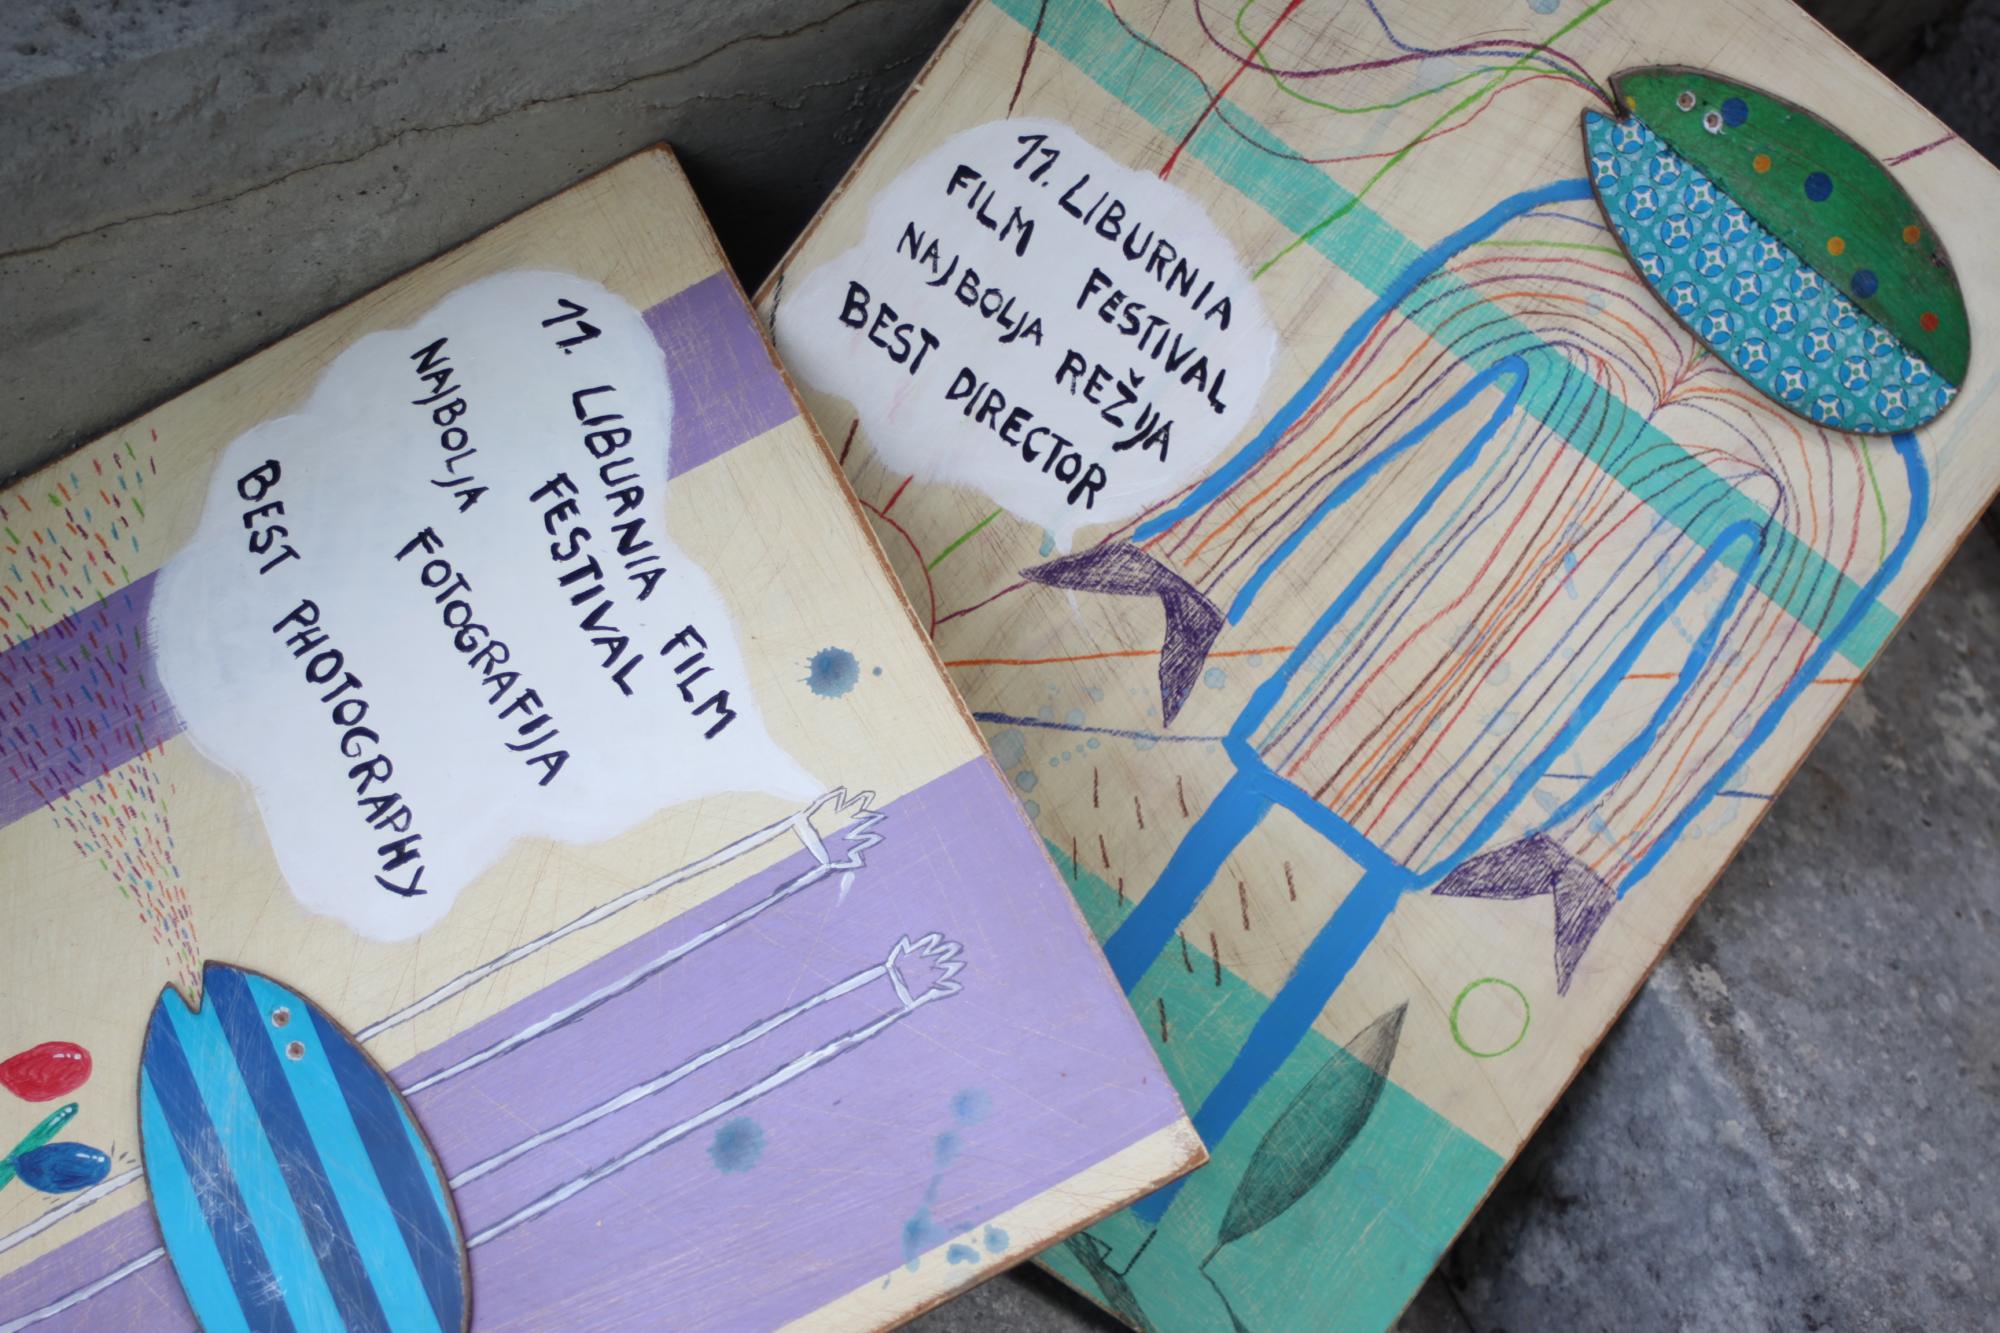 11. LIBURNIA FILM
FESTIVAL
NAJBOLJA FOTOGRAFIJA
BEST PHOTOGRAPHY
11. LIBURNIA
FILM FESTIVAL
NAJBOLJA REŽIJA
BEST DIRECTOR